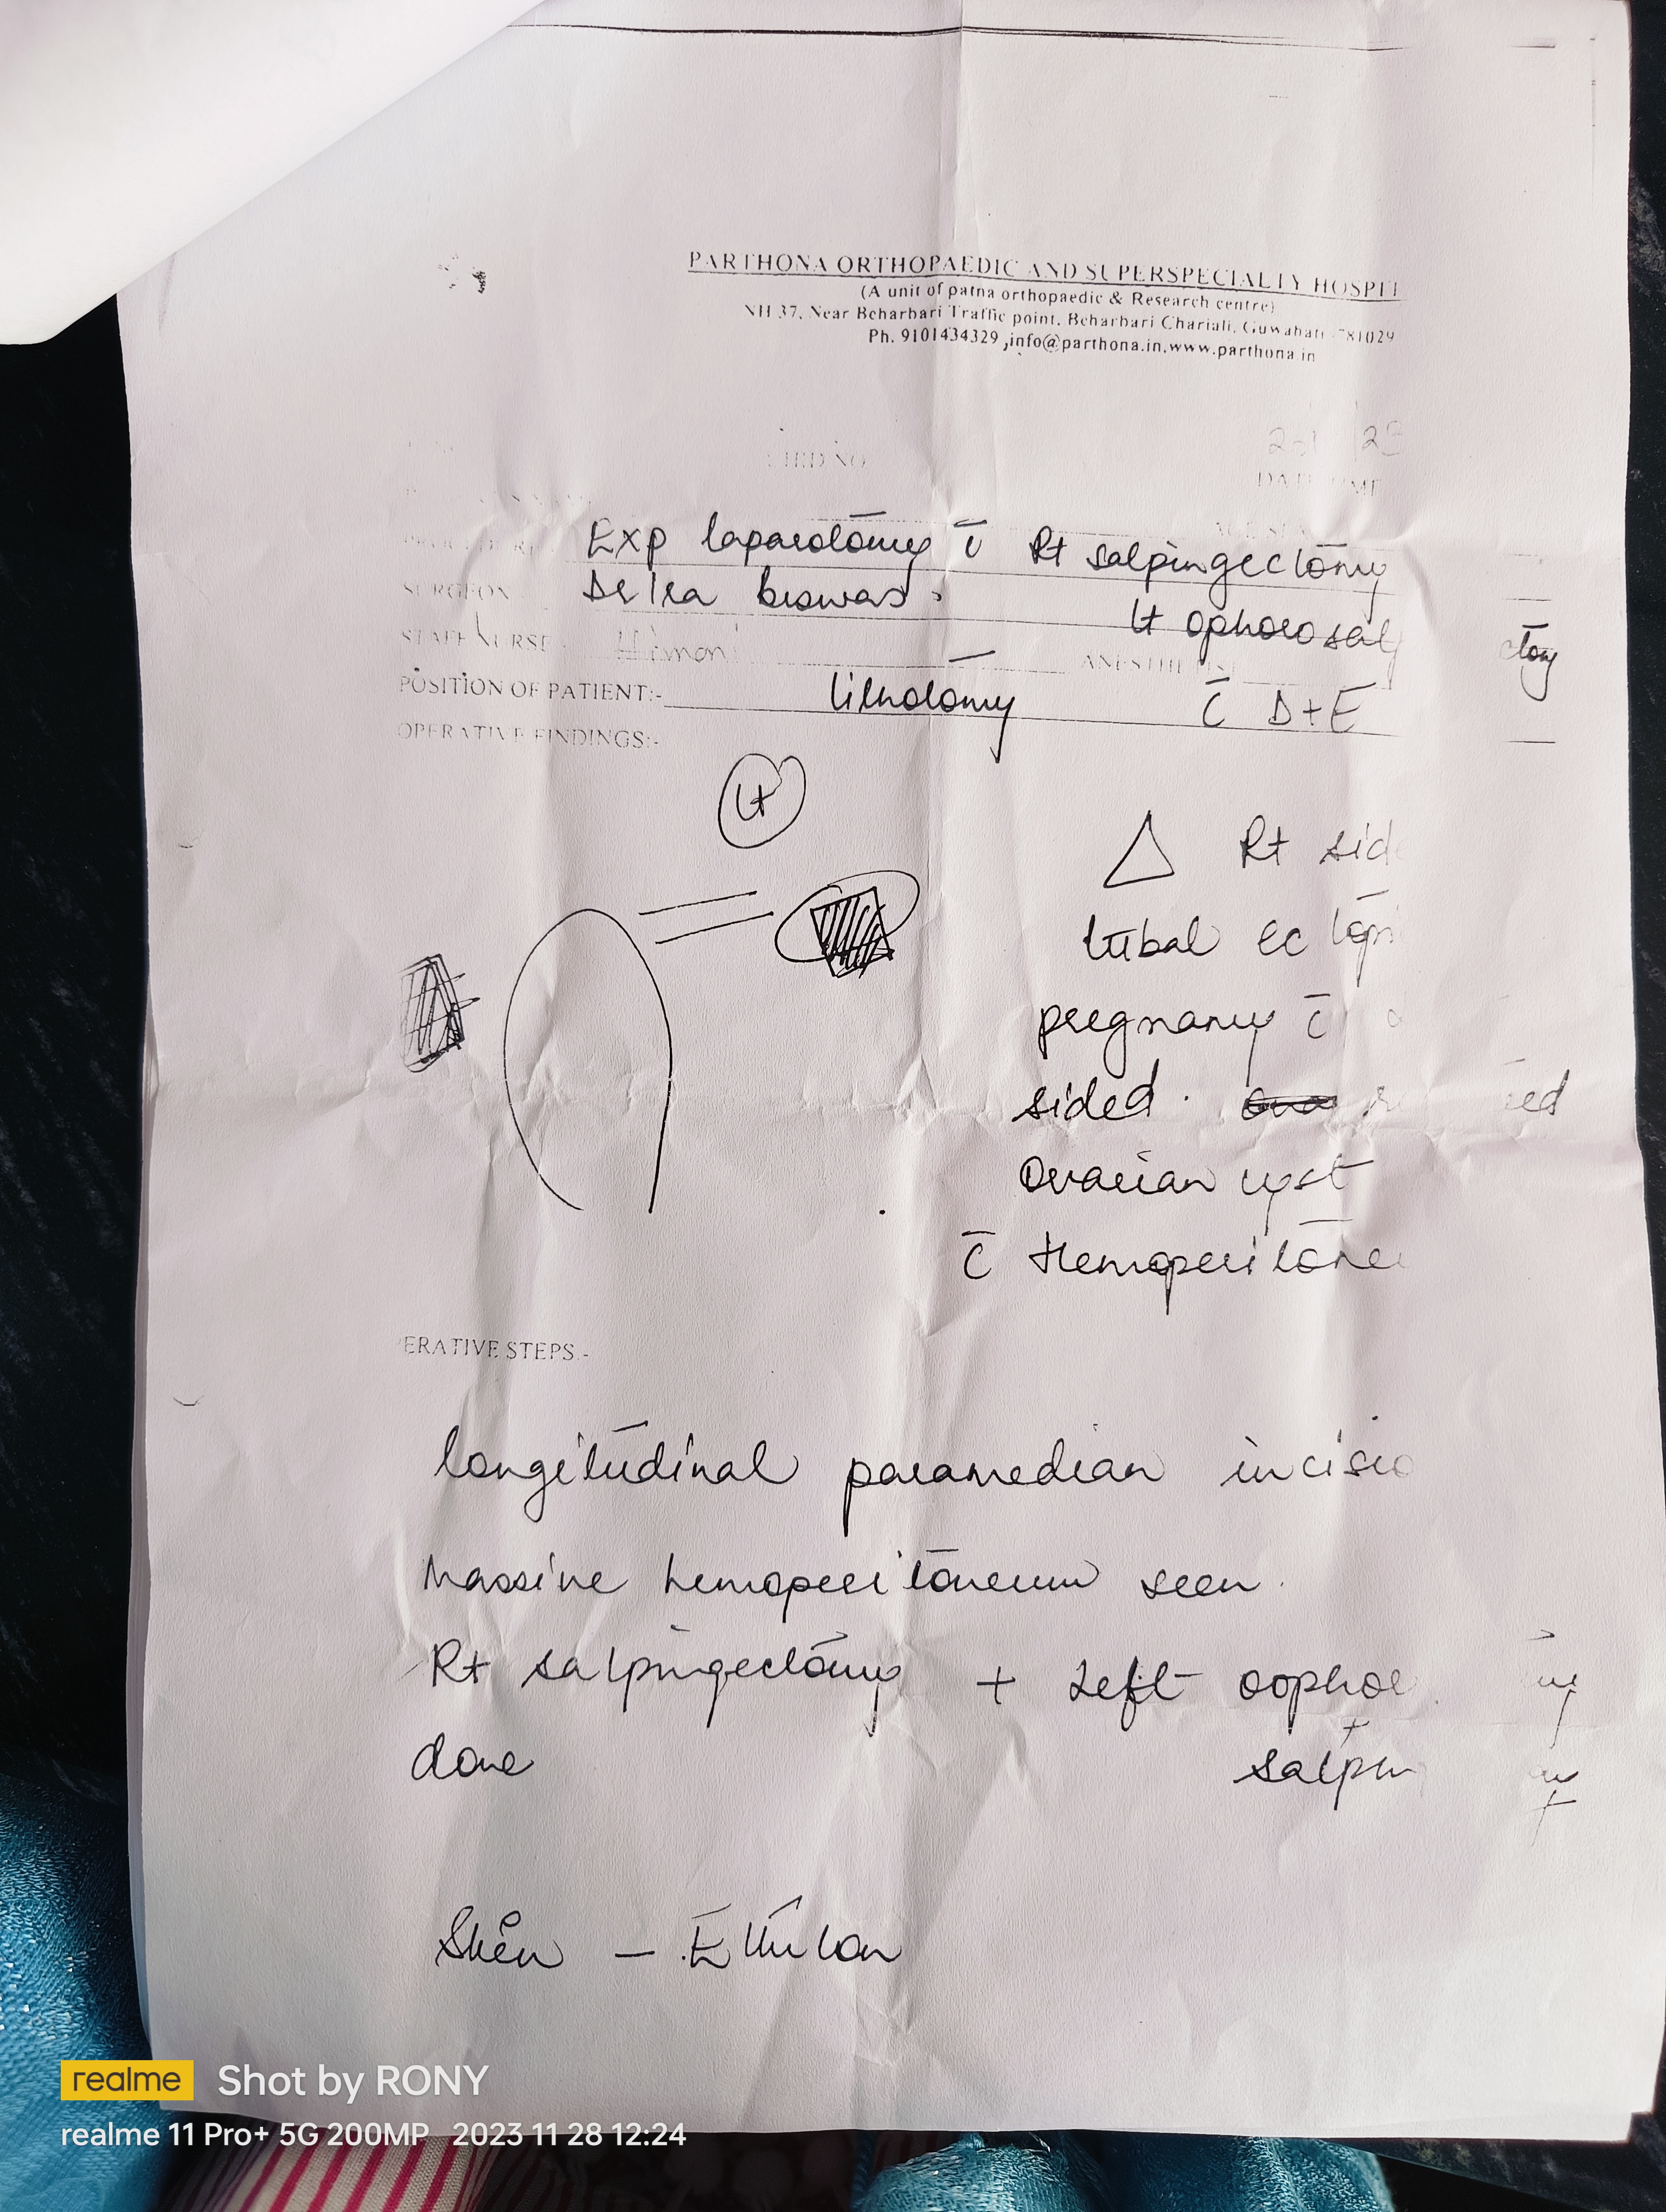 PARTHONA ORTHOPAEDIC AND SUPERSPECIALTY HOSPIT
(A unit of patna orthopaedic & Research centre)
NH 37, Near Beharbari Traffic point, Beharbari Chariali, Guwahati - 781029
Ph. 9101434329 ,info@parthona.in,www.parthona.in
23
Exp laparotomy c̄ Rt salpingectomy
SURGEON
biswas
Lt ophorosal ctomy
STAFF NURSE Himani
POSITION OF PATIENT:- lithotomy c̄ D+E
OPERATIVE FINDINGS:-
Lt
△ Rt side
tubal ectopi
pregnancy c̄
sided
Ovarian cyst
c̄ Hemoperitone
ERATIVE STEPS:-
longitudinal paramedian incisio
Massive hemoperitoneum seen.
Rt salpingectomy + Left oophoe my
done salpin
Skin - Ethilon
realme Shot by RONY
realme 11 Pro+ 5G 200MP 2023 11 28 12:24